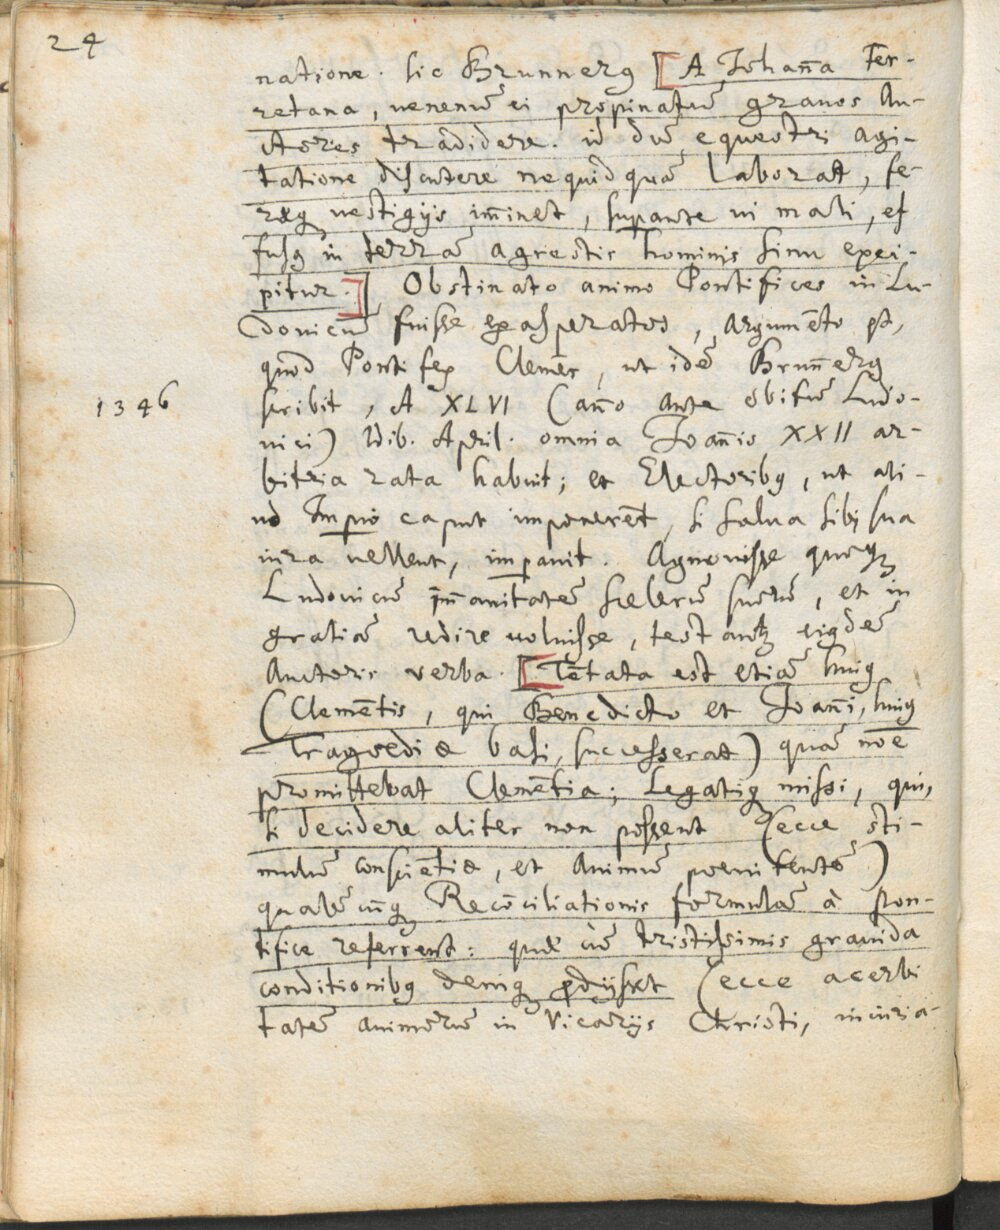 24
natione. sic Brunnerꝰ [A Johan̄a Fer-
retana, venenū ei propinatū graues Au-
ctores tradidere. id dū equestri agi-
tatione discutere nequidquā laborat, fe-
ræq; vestigijs im̄inet, superante vi mali, ef
fusꝰ in terrā agrestis hominis sinu exci-
pitur.] Obstinato animo Pontifices in Lu-
douicū fuisse exasperatos, argumēto est,
quod Pontifex Clemēs, ut idē Brun̄erꝰ
1346 scribit, A XLVI (an̄o ante obitū Ludo-
uici) Idib. April. omnia Joan̄is XXII ar-
bitria rata habuit; et Electoribꝰ, ut ali-
ud Imp̄io caput imponerēt, si salua sibi sua
iura vellent, imp̄auit. Agnouisse quoq;
Ludouicū im̄anitatē scelerū suorū, et in
gratiā redire uoluisse, testantꝛ eiꝰdē
Auctoris verba. [Tētata est etiā huiꝰ
(Clemētis, qui Benedicto et Joan̄i, huiꝰ
Tragoediæ basi, successerat) quā nōe
promittebat Clemētia; Legatiq; missi, qui,
si decidere aliter non possent (ecce sti-
mulū consciētiæ, et Animū poenitentē)
qualēcūq; Recōciliationis formulā à Pon-
tifice referrent: quæ cū tristissimis grauida
conditionibꝰ deniq; prodijsset (ecce acerbi
tatē animorū in Vicarijs Christi, iniuria-